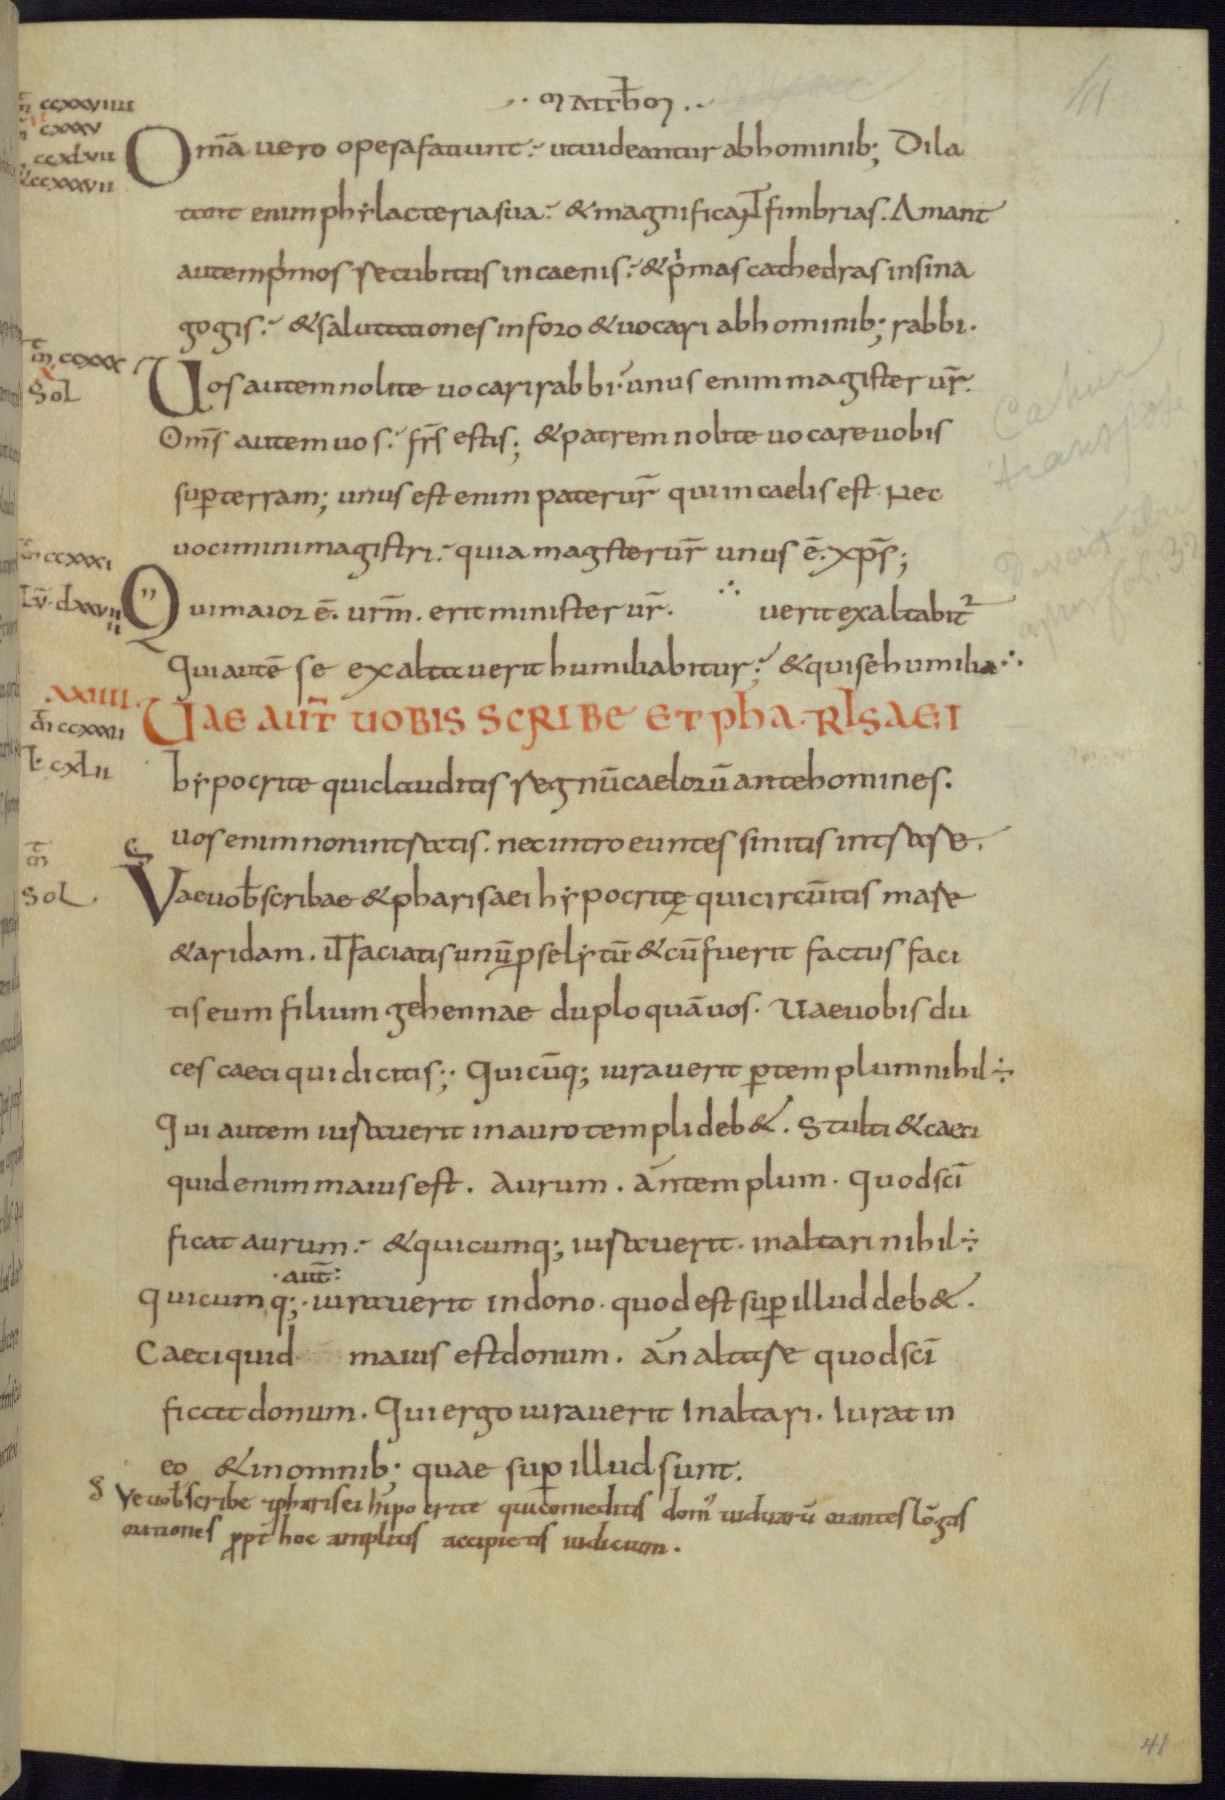 ·· mattħm ··
m̄ ccxxviiii
cxxxv
ccxlvii
ccxxxvii
Om̄a uero opera faciunt· ut uideantur ab hominib; Dila
tant enim phẏlacteria sua· & magnificant fimbrias. Amant
autem p͛mos recubitus in caenis· & p͛mas cathedras in sina
gogis· & salutationes in foro & uocari ab hominib; rabbi·
m̄ ccxxx
x
Sol
Uos autem nolite uocari rabbi· unus enim magister ur̄·
Om̄s autem uos· fr̄s estis; & patrem nolite uocare uobis
sup̄ terram; unus est enim pater ur̄ qui in caelis est· Nec
uocimini magistri· quia magster ur̄ unus ē· xp̄s;
m̄ ccxxxi
Qui maior ē. urm̄. erit minister ur̄. ∴ uerit exaltabit͛
Qui autē se exaltauerit humiliabitur· & qui se humilia∴
xxiiii
m̄ ccxxxii
l· cxlii
UAE AUT̄ UOBIS SCRIBE ET PhA·RISAEI
hẏpocrite qui clauditis regnū caelorū ante homines.
uos enim non intratis. nec introeuntes sinitis intrare.
m̄
Sol.
Vae uob̄ scribae & pharisaei hẏpocritę qui circūitis mare
& aridam. ut faciatis unū p̄selẏtū & cū fuerit factus faci
tis eum filium gehennae duplo quā uos· Uae uobis du
ces caeci qui dicitis;· Quicūq; iurauerit p̄ templum nihil ÷
Qui autem iurauerit in auro templi deb&. Stulti & caeci
quid enim maius est. Aurum. án templum· Quod sc̄i
ficat aurum· & quicumq; iurauerit· in altari nihil ÷
·aut̄:
quicumq;· iurauerit in dono· quod est sup̄ illud deb&.
Caeci quid maius est donum. án altare quod sc̄i
ficat donum. Qui ergo iurauerit In altari. Iurat in
eo & in omnib; quae sup̄ illud sunt.
Ve uob̄ scribe & pharisei hipocrite qui comeditis dom͛ uiduarū orantes lōgas
orationes ꝓpt̄ hoc amplius accipietis iudicium.
Cahier
transposé
fol. 32
41